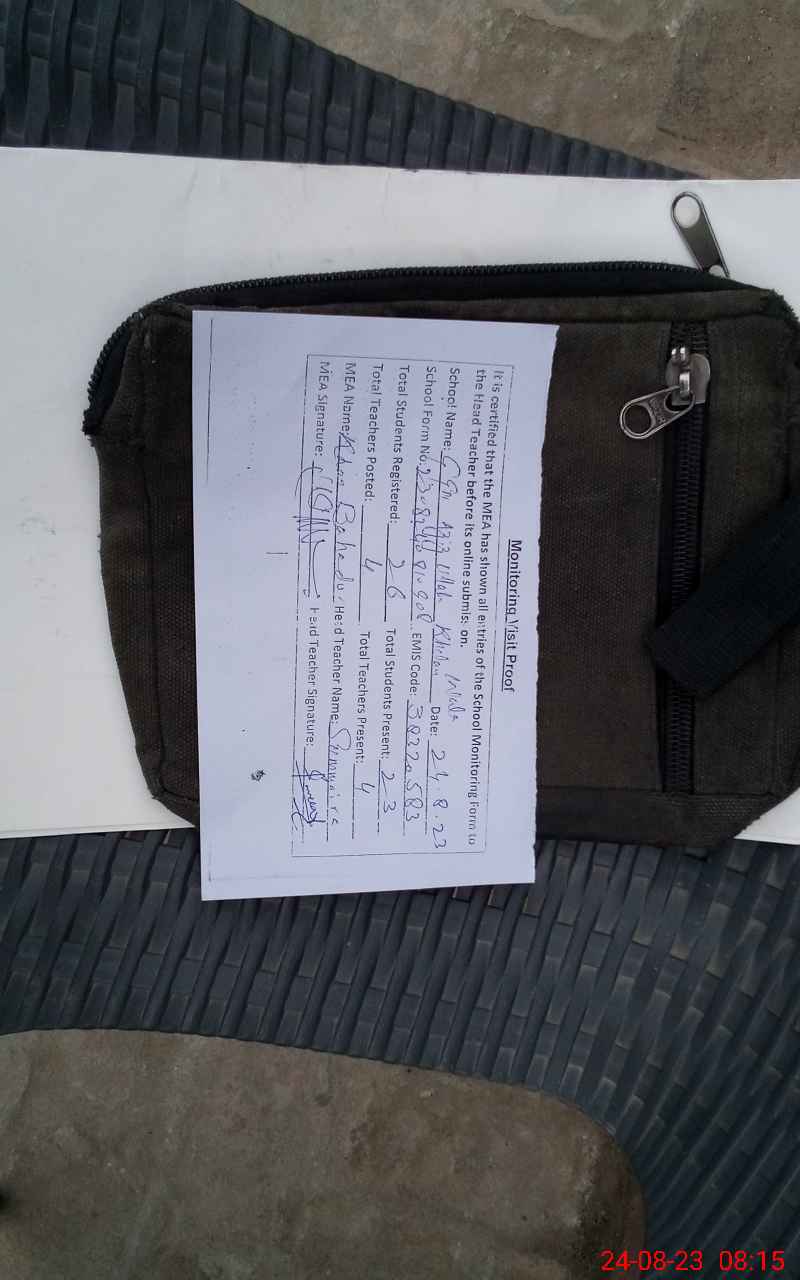 Monitoring Visit Proof
It is certified that the MEA has shown all entries of the School Monitoring Form to
the Head Teacher before its online submission.
School Name: Aziz Ullah Date: 24.8.23
School Form No: EMIS Code: 38320583
Total Students Registered: 26 Total Students Present: 23
Total Teachers Posted: 4 Total Teachers Present: 4
MEA Name: Khan Bahadur Head Teacher Name: Summaira
MEA Signature: Head Teacher Signature:
24-08-23 08:15